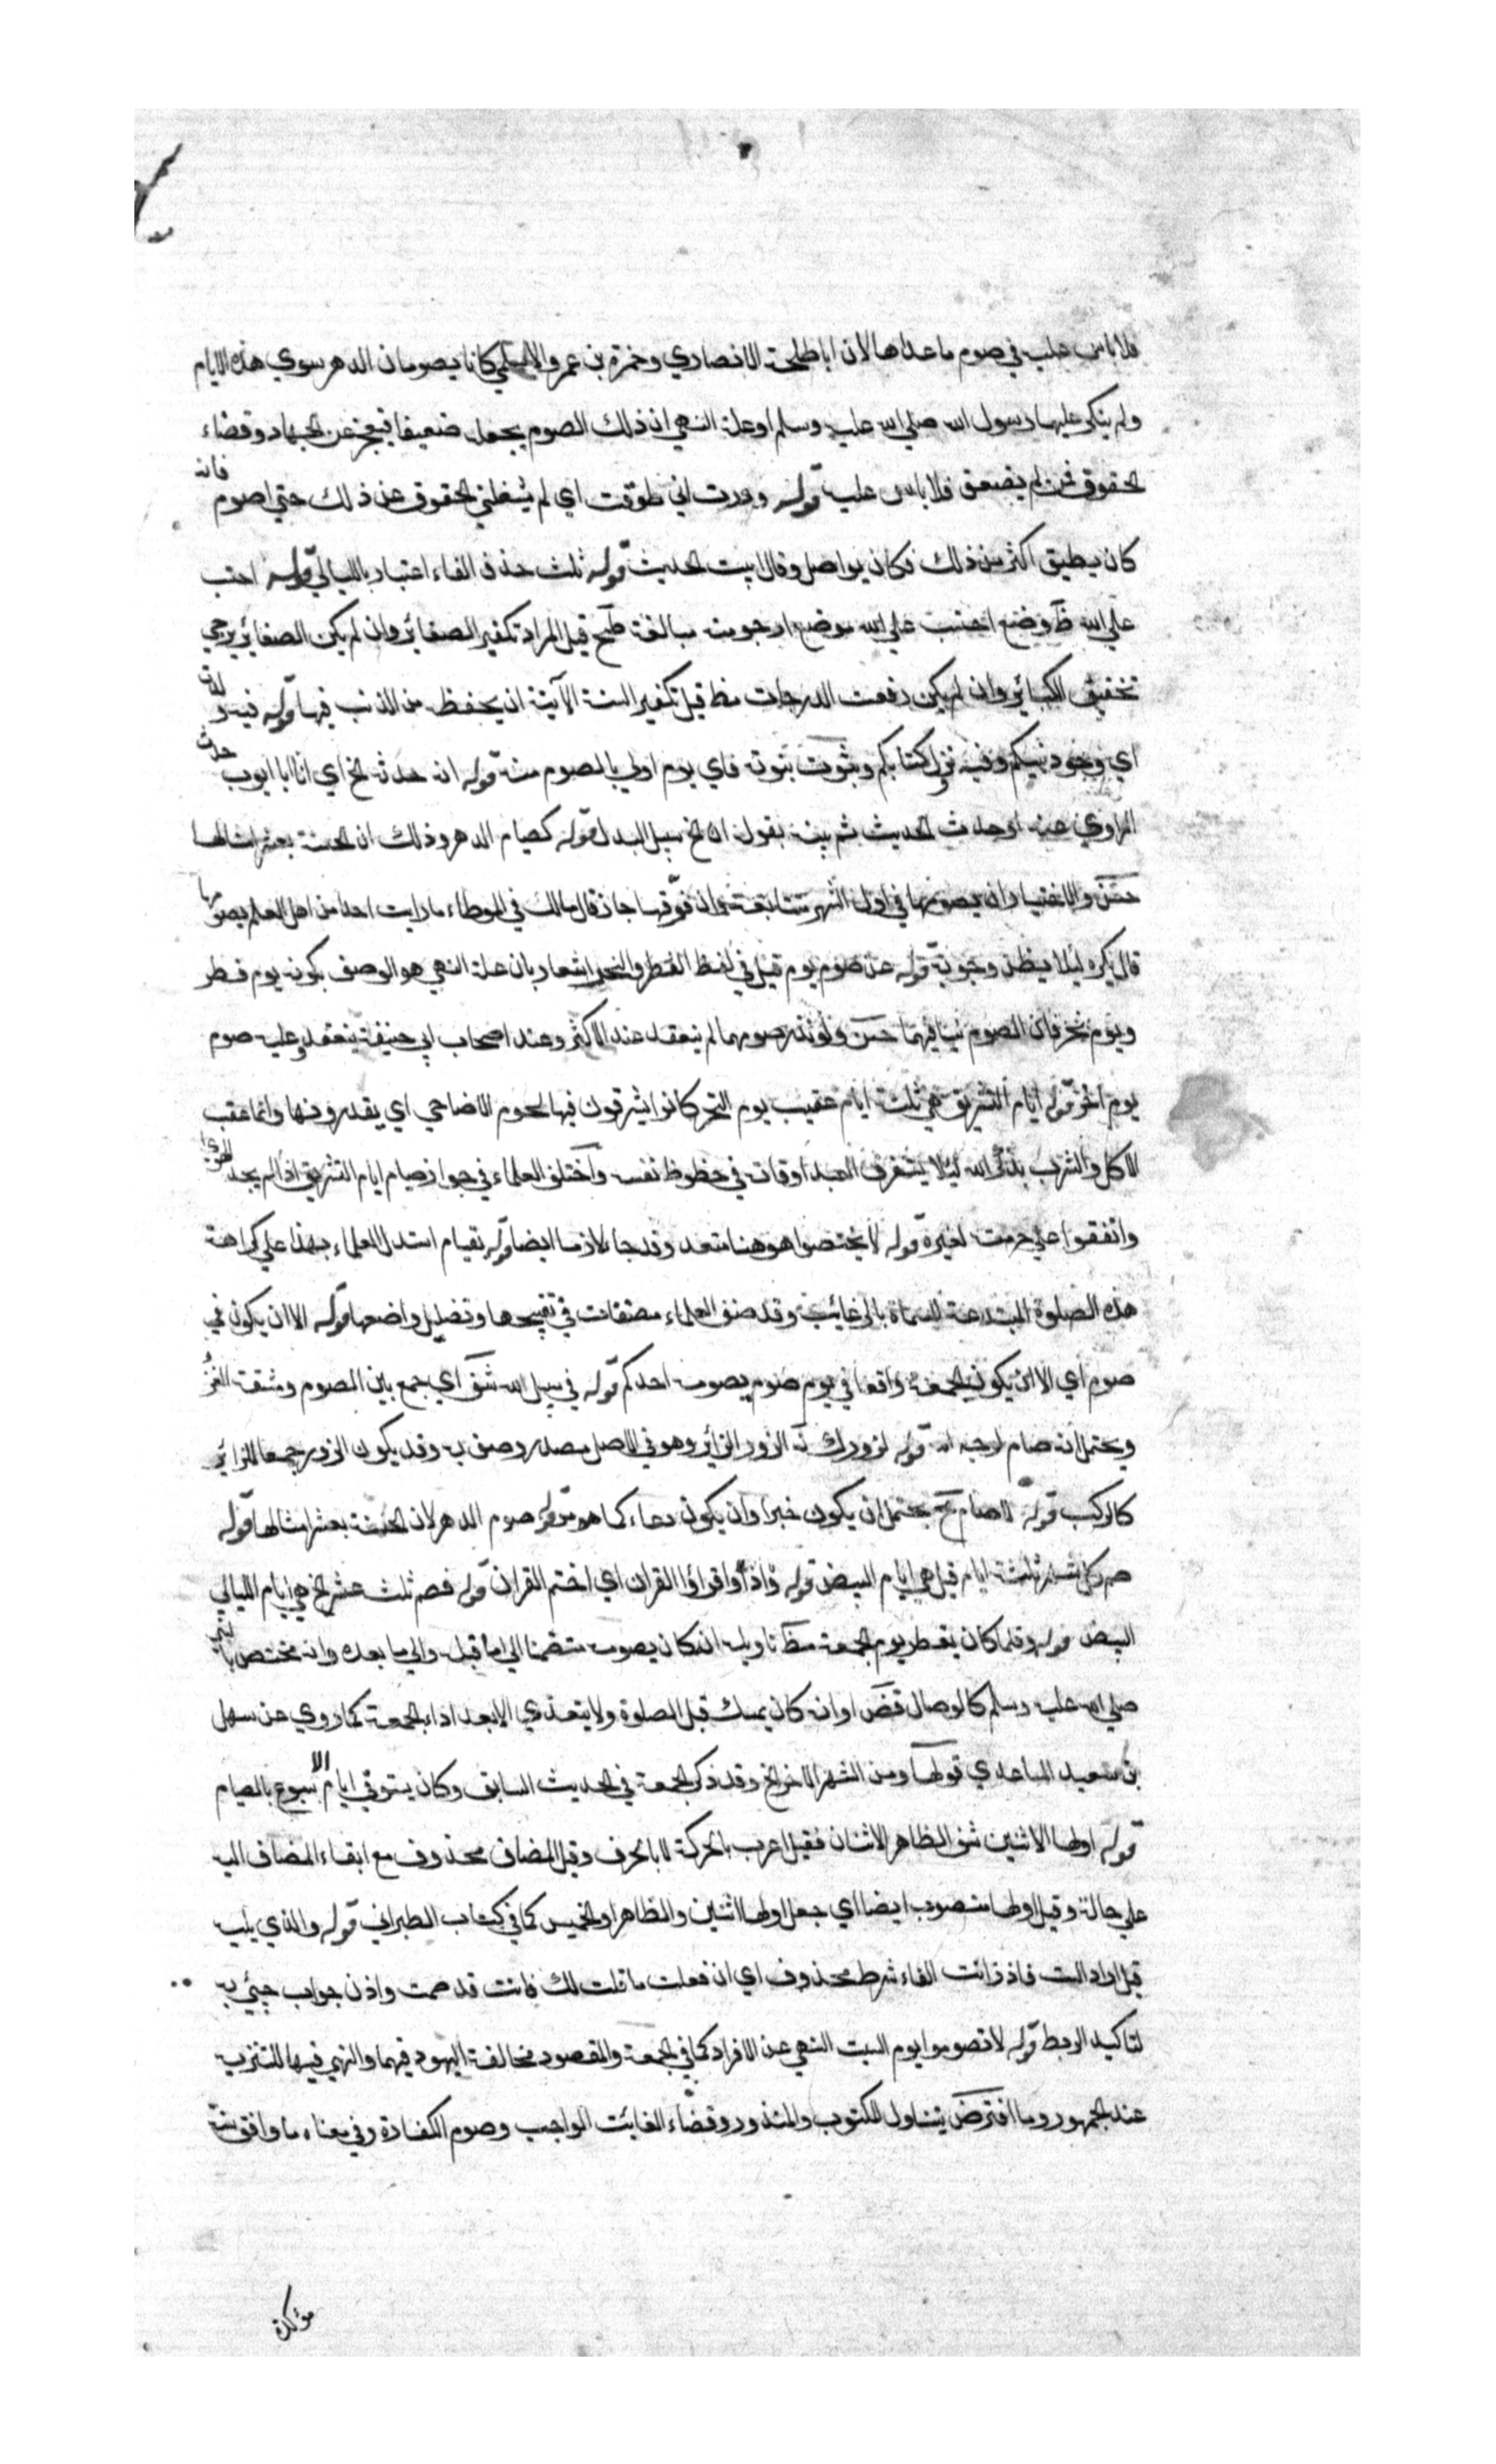 فلا باس عليه في صوم ما عداها لان ابا طلحة الانصاري وحمزة بن عمرو الاسلمي كانا يصومان الدهر سوي هذه الايام
ولم ينكر عليهما رسول الله صلي الله عليه وسلم او علة النهي ان ذلك الصوم يجعله ضعيفا فيعجز عن الجهاد وقضاء
الحقوق فمن لم يضعف فلا باس عليه قوله وددت اني طوقت اي لم يشغلني الحقوق عن ذلك حتي اصوم فانه
كان يطيق اكثر من ذلك فكان يواصل وقال ابيت الحديث قوله ثلث حذف الفاء اعتبار بالليالي قوله احتسب
علي الله وضع احتسب علي الله موضع ارجو منه مبالغة قيل المراد تكفير الصغائر وان لم يكن الصغائر يرجي
تخفيف الكبائر وان لم يكن رفعت الدرجات مظ قيل تكفير السنة الآتية ان يحفظه من الذنب فيها قوله فيه ولدت
اي وجود نبيكم وفيه نزل كتابكم وثبوت نبوته فاي يوم اولي بالصوم منه قوله انه حدثه الخ اي ان ابا ايوب حدث
الراوي عنه او حدث الحديث ثم بينه بقوله ان الخ سبيل البدل قوله كصيام الدهر وذلك ان الحسنة بعشر امثالها
حسن والاختيار ان يصومها في اول الشهر متتابعة وان فرقها جاز قال مالك في الموطاء ما رايت احدا من اهل العلم يصومها
قال يكره لئلا يظن وجوبه قوله عن صوم يوم قيل في لفظ الفطر والنحر اشعار بان علة النهي هو الوصف بكونه يوم فطر
ويوم نحر فان الصوم ينافيهما حسن ولو نذر صومهما لم ينعقد عند الاكثر وعند اصحاب ابي حنيفة ينعقد وعليه صوم
يوم آخر قوله ايام التشريق هي ثلث ايام عقيب يوم النحر كانوا يشرقون فيها لحوم الاضاحي اي يقددونها وانما عقب
الاكل والشرب بذكر الله لئلا يستغرق العبد اوقاته في حظوظ نفسه واختلف العلماء في جواز صيام ايام التشريق اذا لم يجد الهدي
واتفقوا علي حرمته لغيره قوله لا يختصوا هو هنا متعد وقد جاء لازما ايضا قوله بقيام استدل العلماء بهذا علي كراهة
هذه الصلوة المبتدعة المسماة بالرغائب وقد صنف العلماء مصنفات في تقبيحها وتضليل واضعها قوله الا ان يكون في
صوم اي الا ان يكون الجمعة واقعا في يوم صوم يصومه احدكم قوله في سبيل الله شق اي جمع بين الصوم ومشقة الغزو
ويحتمل انه صام لوجه الله قوله لزورك الزور الزائر وهو في الاصل مصدر وصف به وقد يكون الزور جمعا للزائر
كالركب قوله لا صام يحتمل ان يكون خبرا وان يكون دعاء كما هو مر قوله صوم الدهر لان الحسنة بعشر امثالها قوله
صم كل شهر ثلثة ايام قيل هي ايام البيض قوله واذا واقرأوا القران اي اختم القران قوله فصم ثلث عشر الخ هي ايام الليالي
البيض قوله وقلما كان يفطر يوم الجمعة مظ تاويله انه كان يصومه منضما الي ما قبله والي ما بعده وانه مختص بالنبي
صلي الله عليه وسلم كالوصال قض او انه كان يمسك قبل الصلوة ولا يتغذي الا بعد اداء الجمعة كما روي عن سهل
بن سعيد الساعدي قولها ومن الشهر الآخر الخ وقد ذكر الجمعة في الحديث السابق وكان يستوفي ايام الاسبوع بالصيام
قوله اولها الاثنين شف الظاهر الاثنان فقيل اعرب بالحركة لا بالحرف وقيل المضاف محذوف مع ابقاء المضاف اليه
علي حاله وقيل اولها منصوب ايضا اي جعل اولها اثنين والظاهر او الخميس كما في كتاب الطبراني قوله والذي يليه
قيل اراد الست فاذن انت الفاء شرط محذوف اي ان فعلت ما قلت لك فانت قد صمت واذن جواب جيئ به
لتاكيد الربط قوله لا تصوموا يوم السبت النهي عن الافراد كما في الجمعة والمقصود مخالفة اليهود فيهما والنهي فيهما للتنزيه
عند الجمهور وما افترض يتناول المكتوب والمنذور وقضاء الفائت الواجب وصوم الكفارة وفي معناه ما وافق سنة
مؤكدة